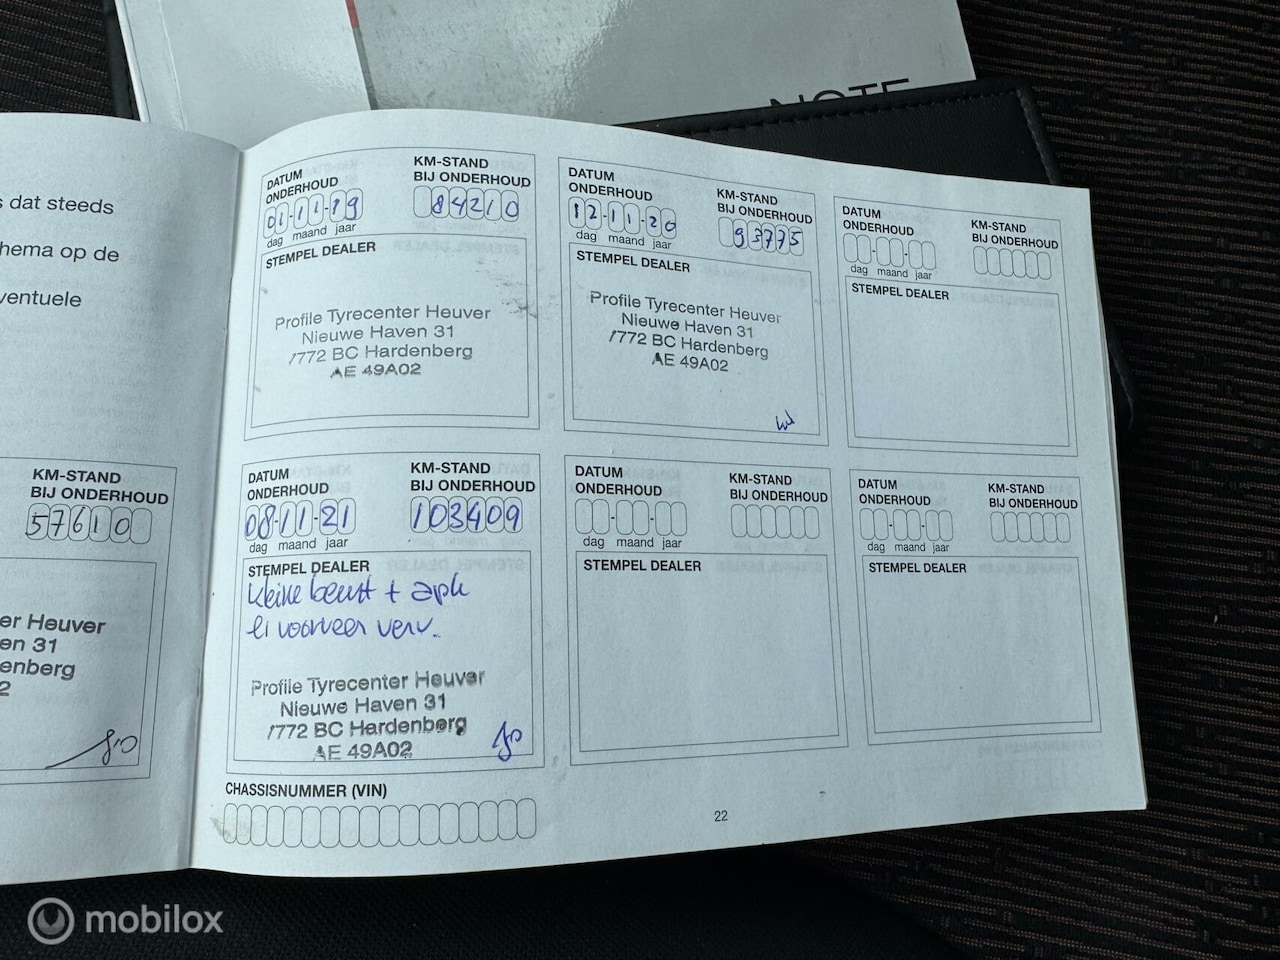 NOTE
s dat steeds
hema op de
ventuele
KM-STAND
BIJ ONDERHOUD
57610
er Heuver
en 31
enberg
2
DATUM
ONDERHOUD
01-11-19
dag maand jaar
KM-STAND
BIJ ONDERHOUD
84210
STEMPEL DEALER
Profile Tyrecenter Heuver
Nieuwe Haven 31
7772 BC Hardenberg
AE 49A02
DATUM
ONDERHOUD
12-11-20
dag maand jaar
KM-STAND
BIJ ONDERHOUD
93775
STEMPEL DEALER
Profile Tyrecenter Heuver
Nieuwe Haven 31
7772 BC Hardenberg
AE 49A02
DATUM
ONDERHOUD
dag maand jaar
KM-STAND
BIJ ONDERHOUD
STEMPEL DEALER
DATUM
ONDERHOUD
08-11-21
dag maand jaar
KM-STAND
BIJ ONDERHOUD
103409
STEMPEL DEALER
kleine beurt + apk
voorveer verv.
Profile Tyrecenter Heuver
Nieuwe Haven 31
7772 BC Hardenberg
AE 49A02
DATUM
ONDERHOUD
dag maand jaar
KM-STAND
BIJ ONDERHOUD
STEMPEL DEALER
DATUM
ONDERHOUD
dag maand jaar
KM-STAND
BIJ ONDERHOUD
STEMPEL DEALER
CHASSISNUMMER (VIN)
22
mobilox